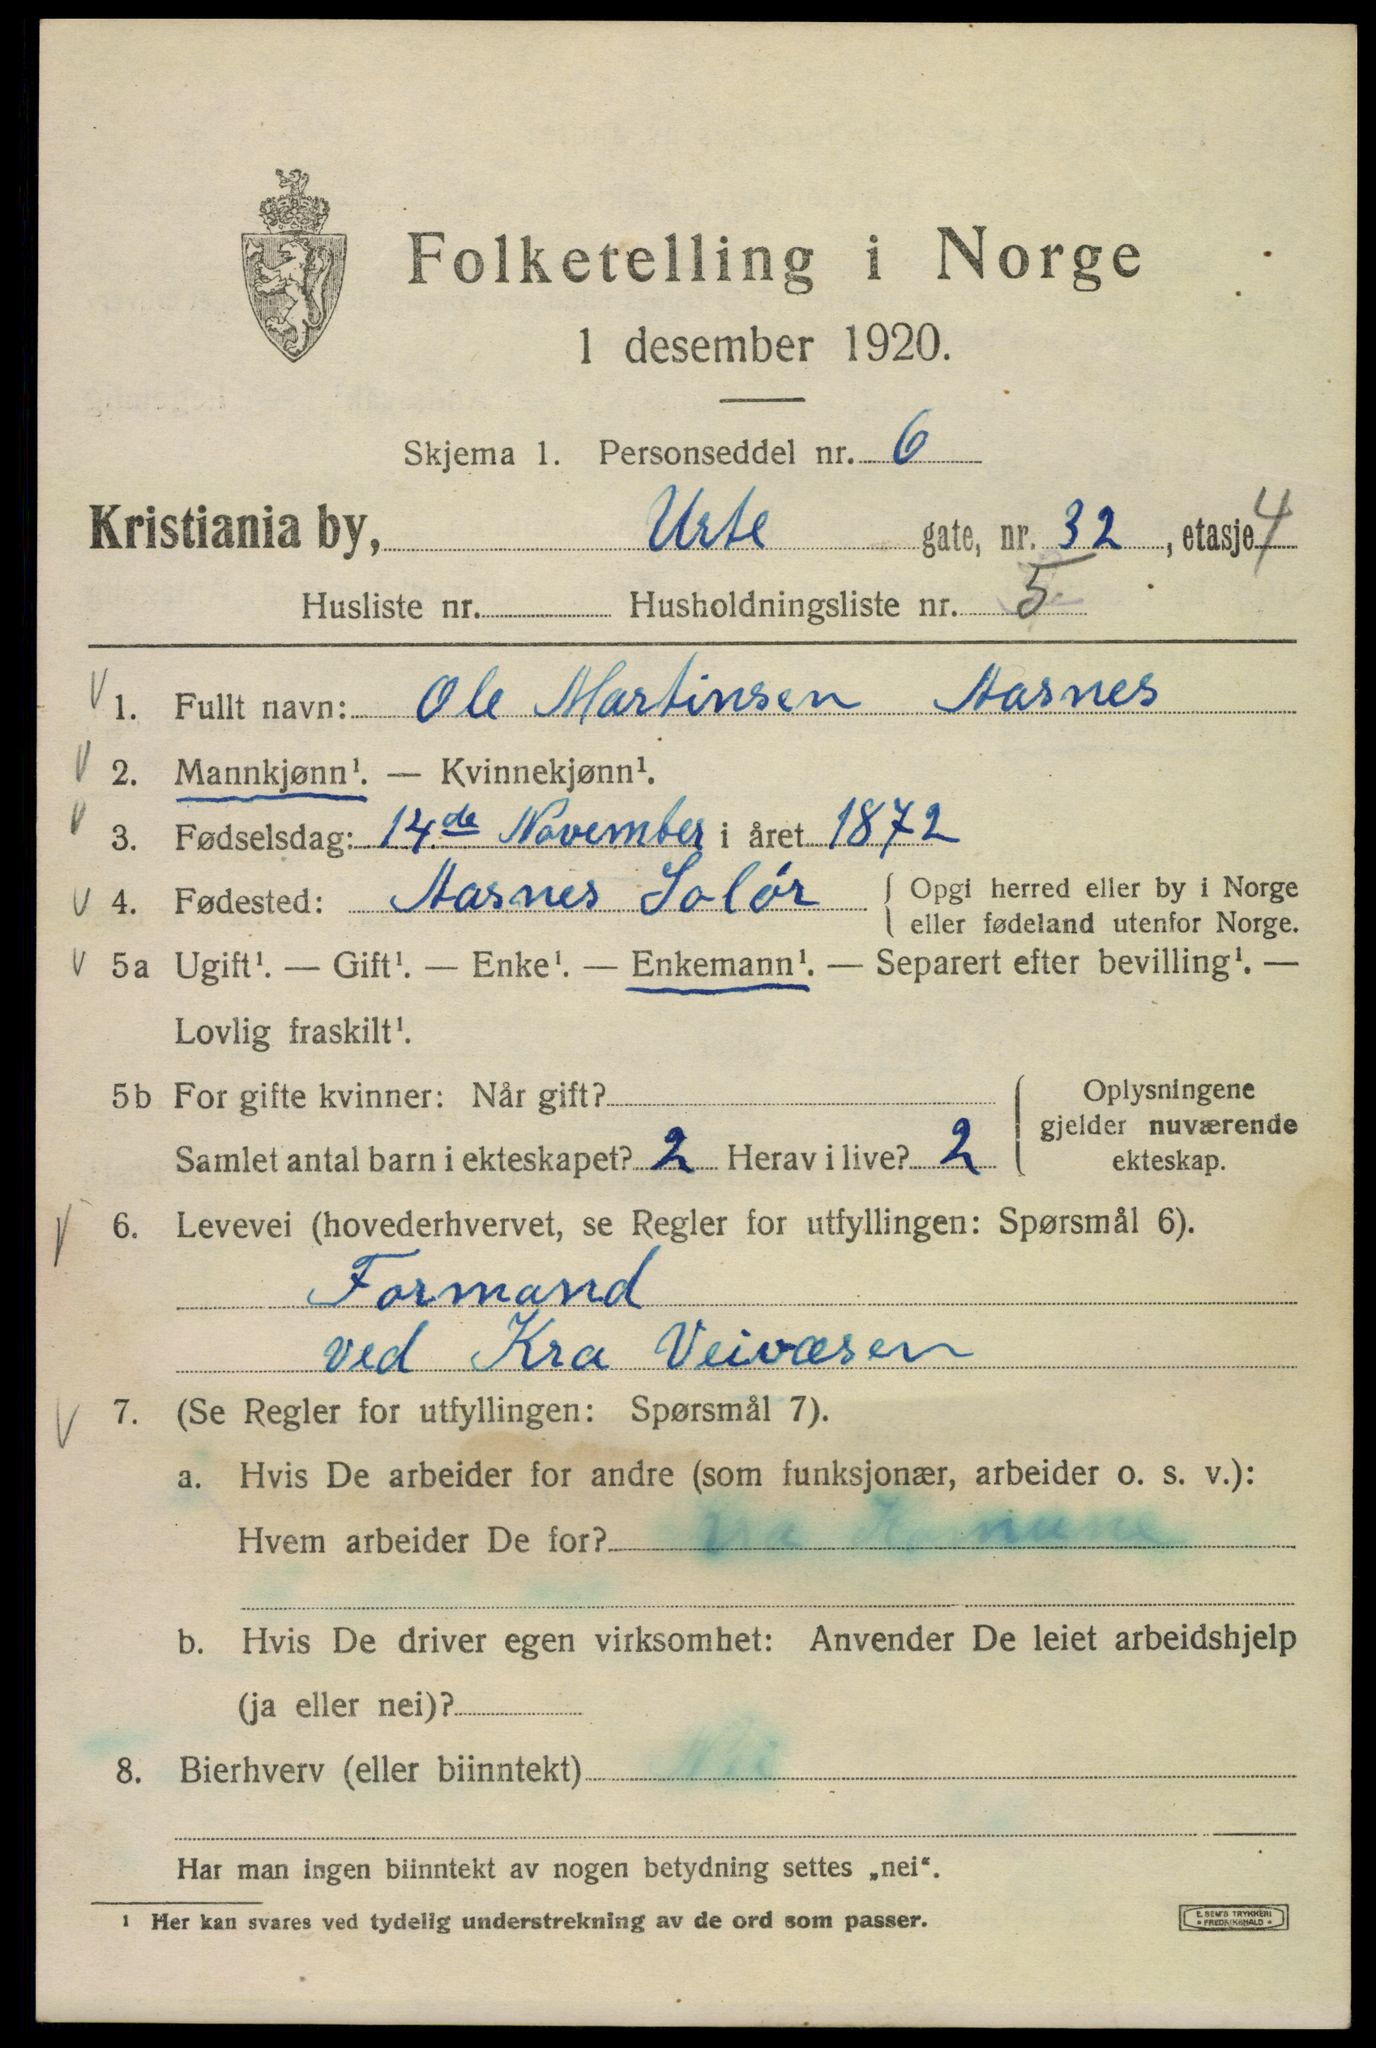 Folketelling i Norge
1 desember 1920.
Skjema 1. Personseddel nr. 6
Kristiania by, Urte gate, nr. 32, etasje 4
Husliste nr. Husholdningsliste nr. 5
1. Fullt navn: Ole Martinsen Aasnes
2. Mannkjønn¹. — Kvinnekjønn¹.
3. Fødselsdag: 14de November i året 1872
4. Fødested: Aasnes Solör { Opgi herred eller by i Norge
eller fødeland utenfor Norge.
5a Ugift¹. — Gift¹. — Enke¹. — Enkemann¹. — Separert efter bevilling¹. —
Lovlig fraskilt¹.
5b For gifte kvinner: Når gift?
Samlet antal barn i ekteskapet? 2 Herav i live? 2
Oplysningene
gjelder nuværende
ekteskap.
6. Levevei (hovederhvervet, se Regler for utfyllingen: Spørsmål 6).
Formand
ved Kra Veivæsen
7. (Se Regler for utfyllingen: Spørsmål 7).
a. Hvis De arbeider for andre (som funksjonær, arbeider o. s. v.):
Hvem arbeider De for? Kra
b. Hvis De driver egen virksomhet: Anvender De leiet arbeidshjelp
(ja eller nei)?
8. Bierhverv (eller biinntekt) Nei
Har man ingen biinntekt av nogen betydning settes „nei“.
¹ Her kan svares ved tydelig understrekning av de ord som passer.
E. SEM'S TRYKKERI
FREDRIKSHALD